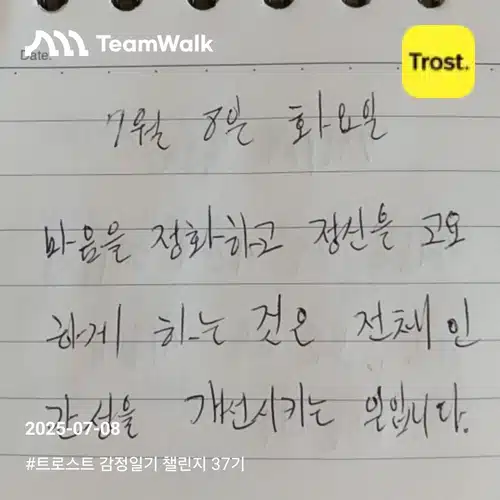 TeamWalk
Trost.
Date.
7월 8일 화요일
마음을 정화하고 정신을 고요
하게 하는 것은 전체 인
간선을 개선시키는 일입니다.
2025-07-08
#트로스트 감정일기 챌린지 37기